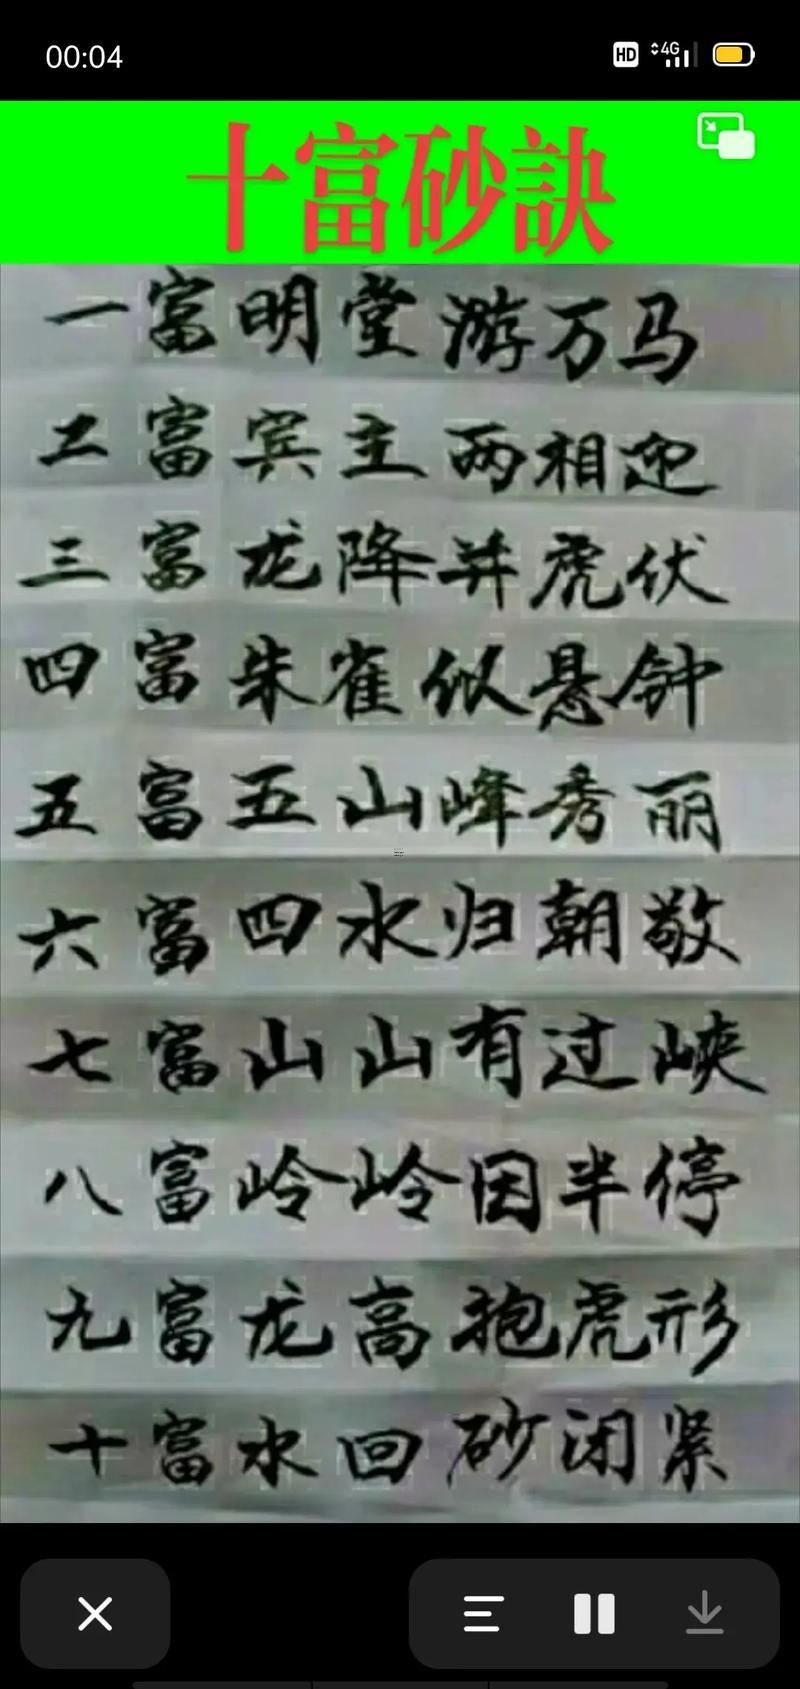 00:04
HD 4G
十富砂訣
一富明堂游万马
二富宾主两相迎
三富龙降并虎伏
四富朱雀似悬钟
五富五山峰秀丽
六富四水归朝敬
七富山山有过峡
八富岭岭因半停
九富龙高抱虎形
十富水回砂闭紧